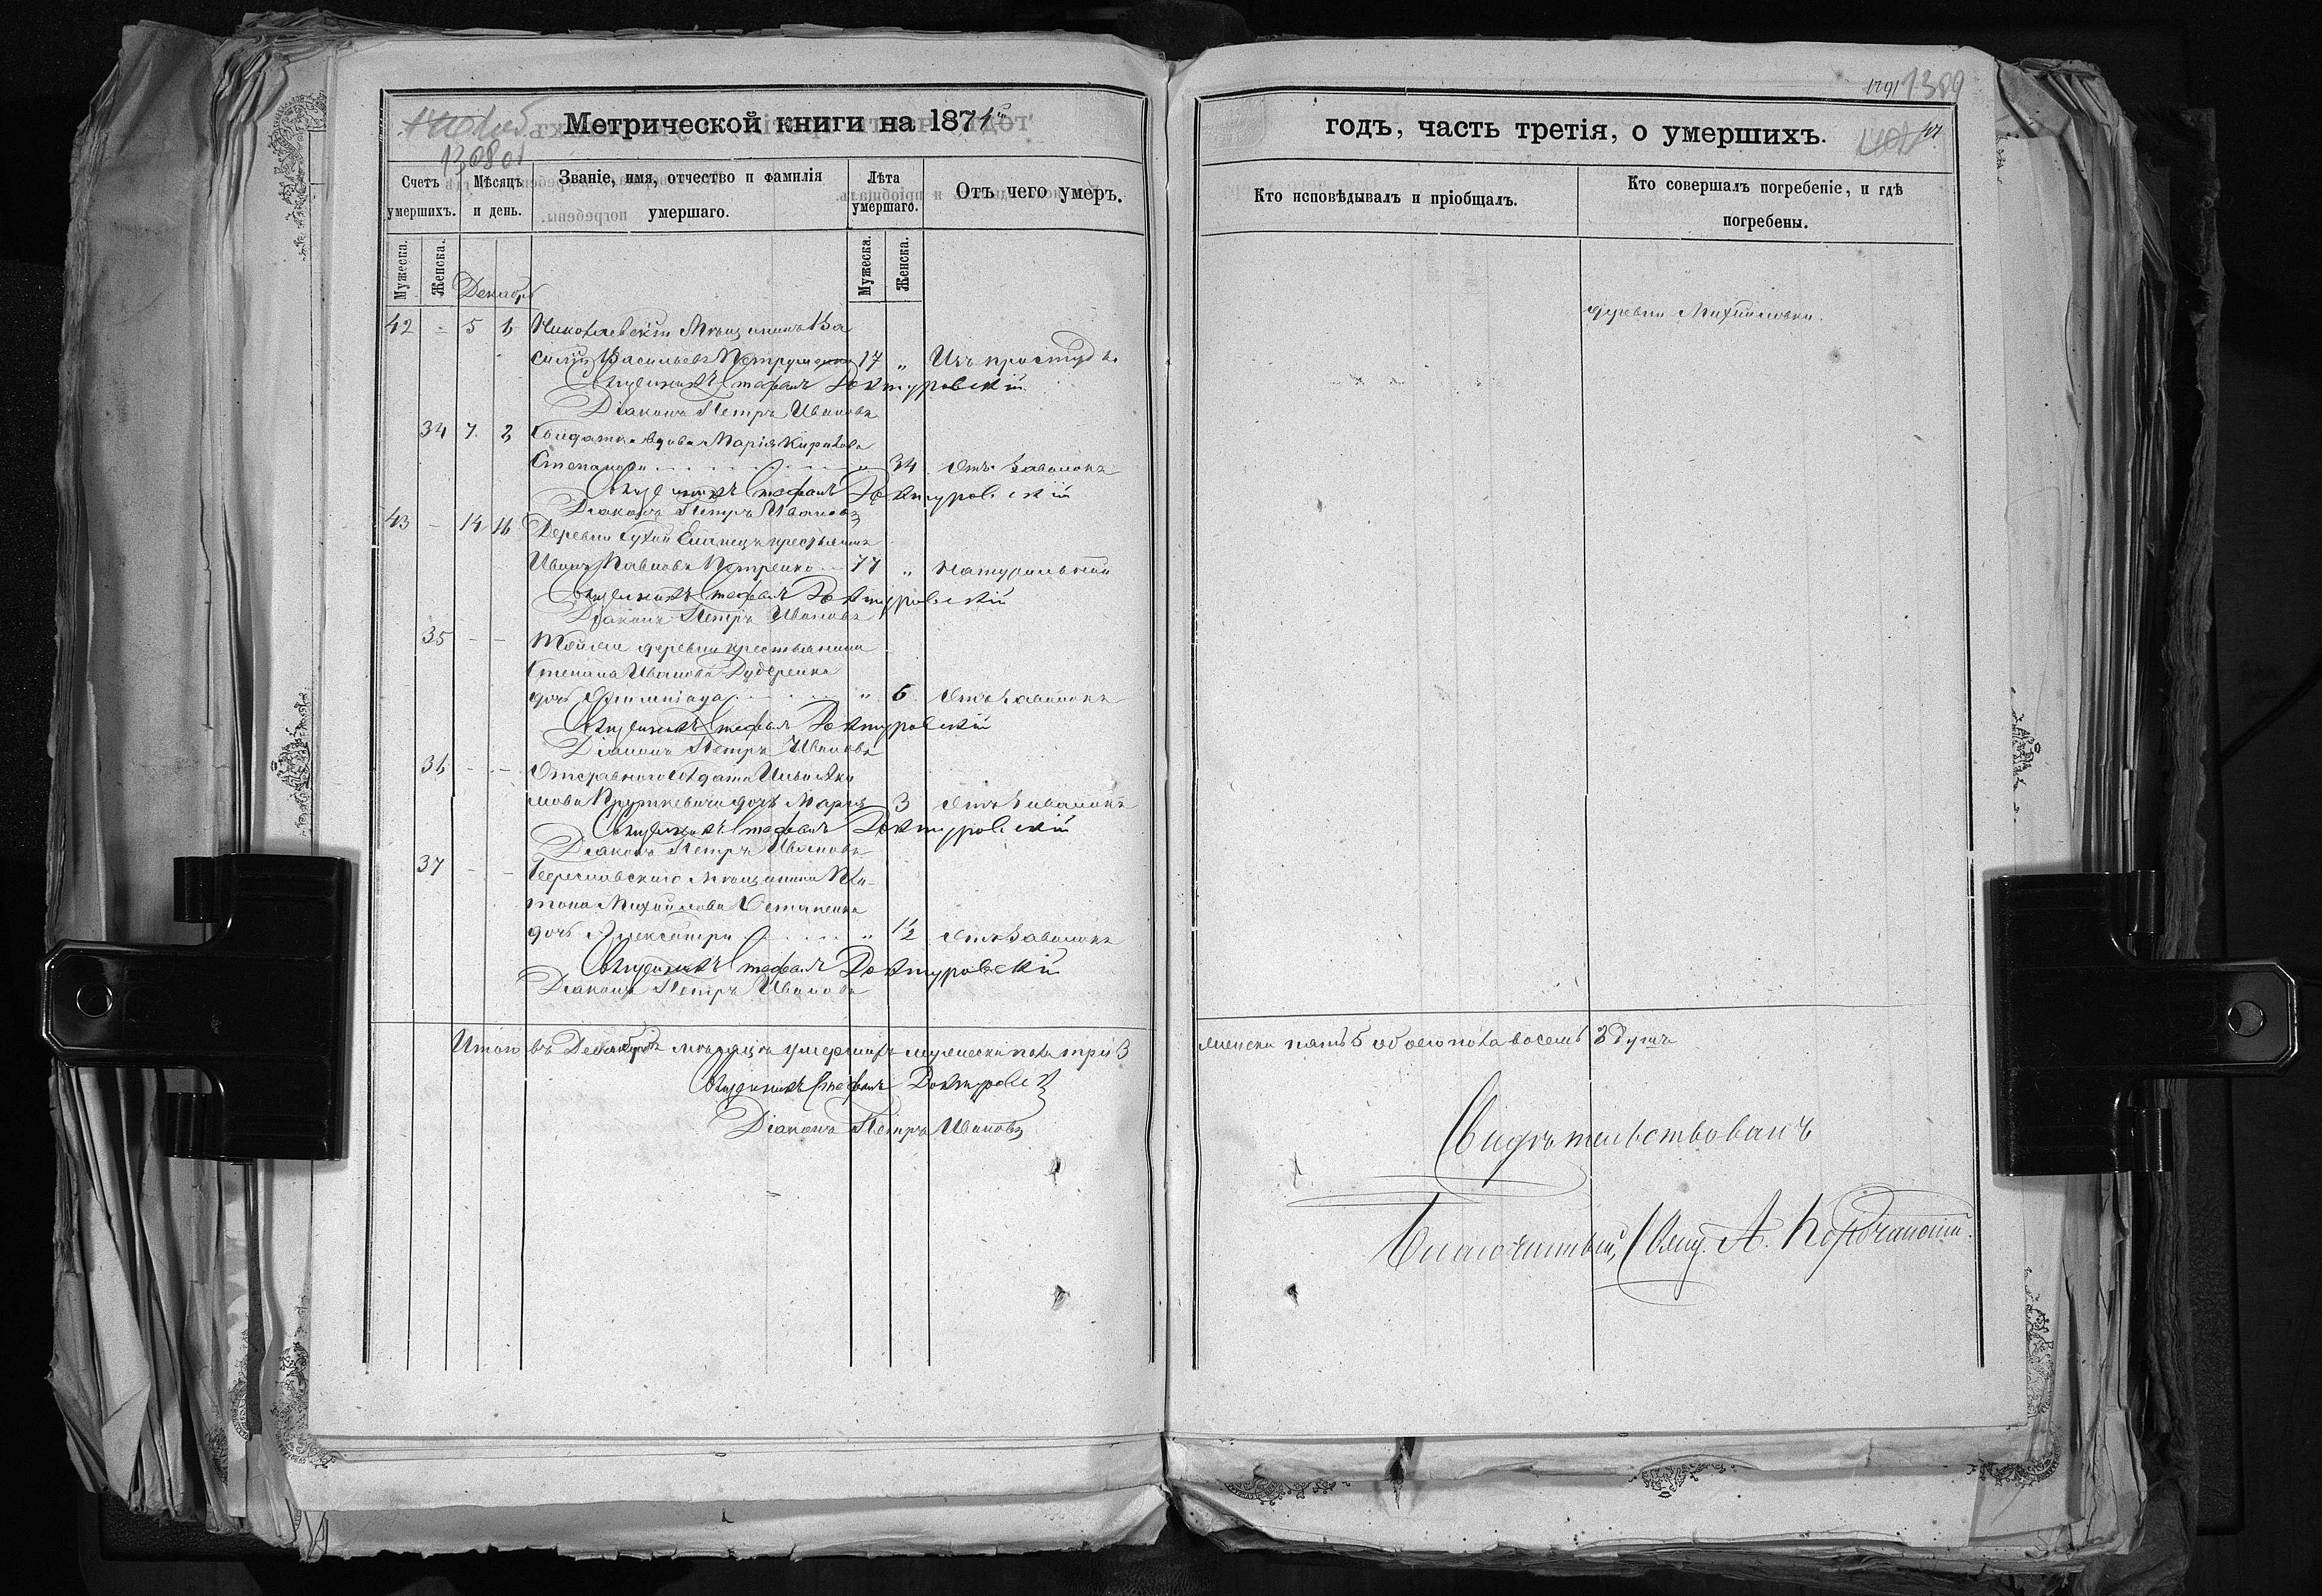 Метрической книги на 1871й
Счетъ умершихъ.
Мѣсяцъ и день.
Званіе, имя, отчество и фамилія умершаго.
Лѣта умершаго.
Отъ чего умеръ.
Мужеска.
Женска.
Мужеска.
Женска.
Декабрь
42 - 5 6 Николаевскій Мѣщанинъ Ва
силій Васильевъ Петрушенко 17 „ Изъ простуды
Священникъ Стефанъ Доктуровскій
Діаконъ Петръ Ивановъ
34 7. 8 Солдатка вдова Марія Кирилова
Степанова „ 34 Отъ Заволокъ
Священникъ Стефанъ Доктуровскій
Діаконъ Петръ Ивановъ
43 - 14 16 Деревни Сухой Еланецъ крестьянинъ
Иванъ Павловъ Петренко 77 „ Натуральной
Священникъ Стефанъ Доктуровскій
Діаконъ Петръ Ивановъ
35 - - Той же деревни крестьянина
Степана Иванова Дудеренка
дочь „ 6 Отъ Заволокъ
Священникъ Стефанъ Доктуровскій
Діаконъ Петръ Ивановъ
36 - - Отставного Солдата Ильи Аки
мова Пруткевича дочь Марія 3 Отъ Заволокъ
Священникъ Стефанъ Доктуровскій
Діаконъ Петръ Ивановъ
37 - - Бериславскаго Мѣщанина Пла-
тона Михайлова Остапенка
дочь Александра „ 1/2 Отъ Заволокъ
Священникъ Стефанъ Доктуровскій
Діаконъ Петръ Ивановъ
Итого въ Декабрѣ мѣсяцѣ умершихъ мужеска пола три 3
Священникъ Стефанъ Доктуровскій
Діаконъ Петръ Ивановъ
1389
годъ, часть третія, о умершихъ.
Кто исповѣдывалъ и пріобщалъ.
Кто совершалъ погребеніе, и гдѣ погребены.
деревни Михайловки.
женска пять 5 обоего пола восемь 8 душъ
Свидѣтельствовалъ
Благочинный, Свящ. А.